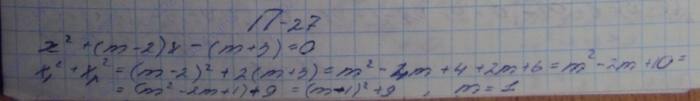 П-27
x² + (m-2)x - (m+3) = 0
x₁² + x₂² = (m-2)² + 2(m+3) = m² - 4m + 4 + 2m + 6 = m² - 2m + 10 =
= (m² - 2m + 1) + 9 = (m-1)² + 9 , m = 1